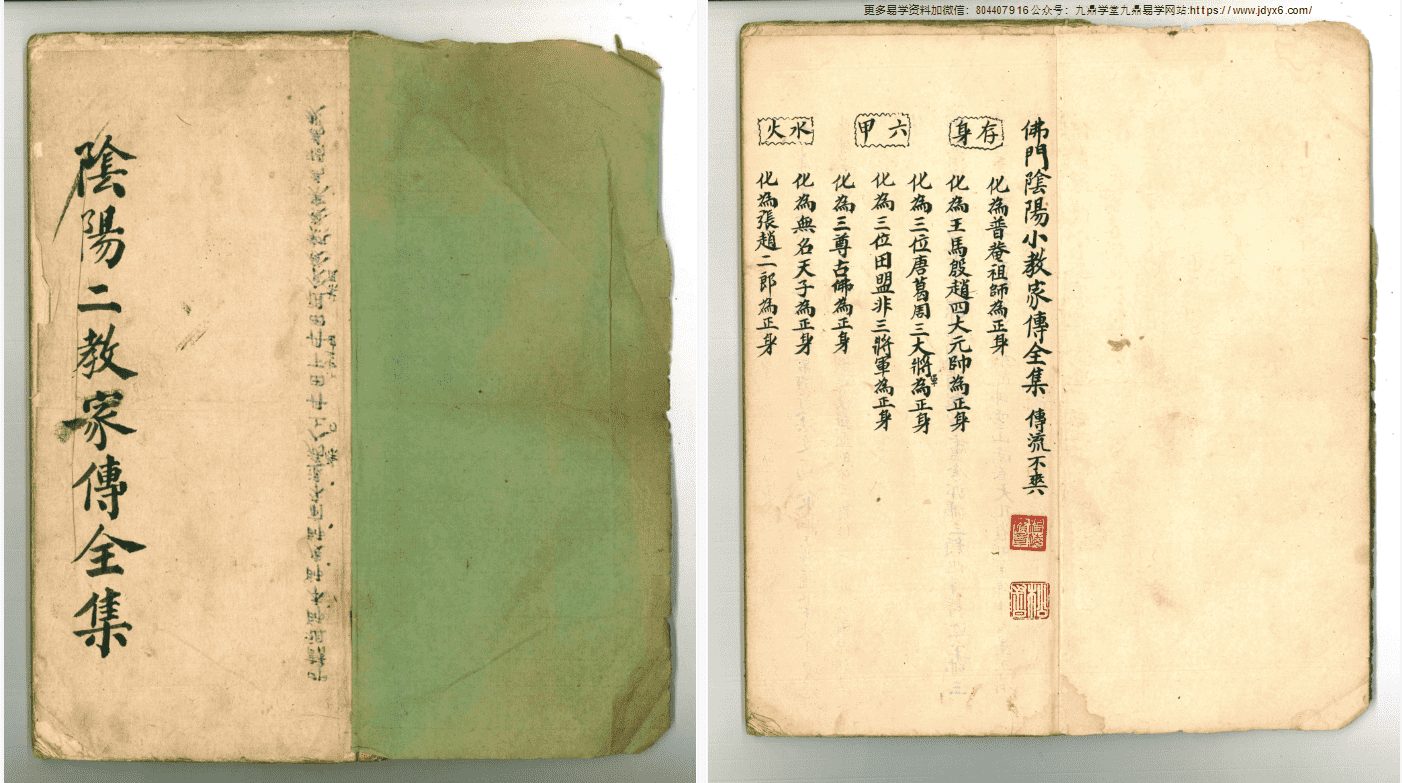 陰陽二教家傳全集
更多易学资料加微信：804407916公众号：九鼎学堂九鼎易学网站:https://www.jdyx6.com/
佛門陰陽小教家傳全集 傳流不與
存身
化為普菴祖師為正身
化為王馬殷趙四大元帥為正身
化為三位唐葛周三大將軍為正身
六甲
化為三位田盟非三將軍為正身
化為三尊古佛為正身
水火
化為無名天子為正身
化為張趙二郎為正身